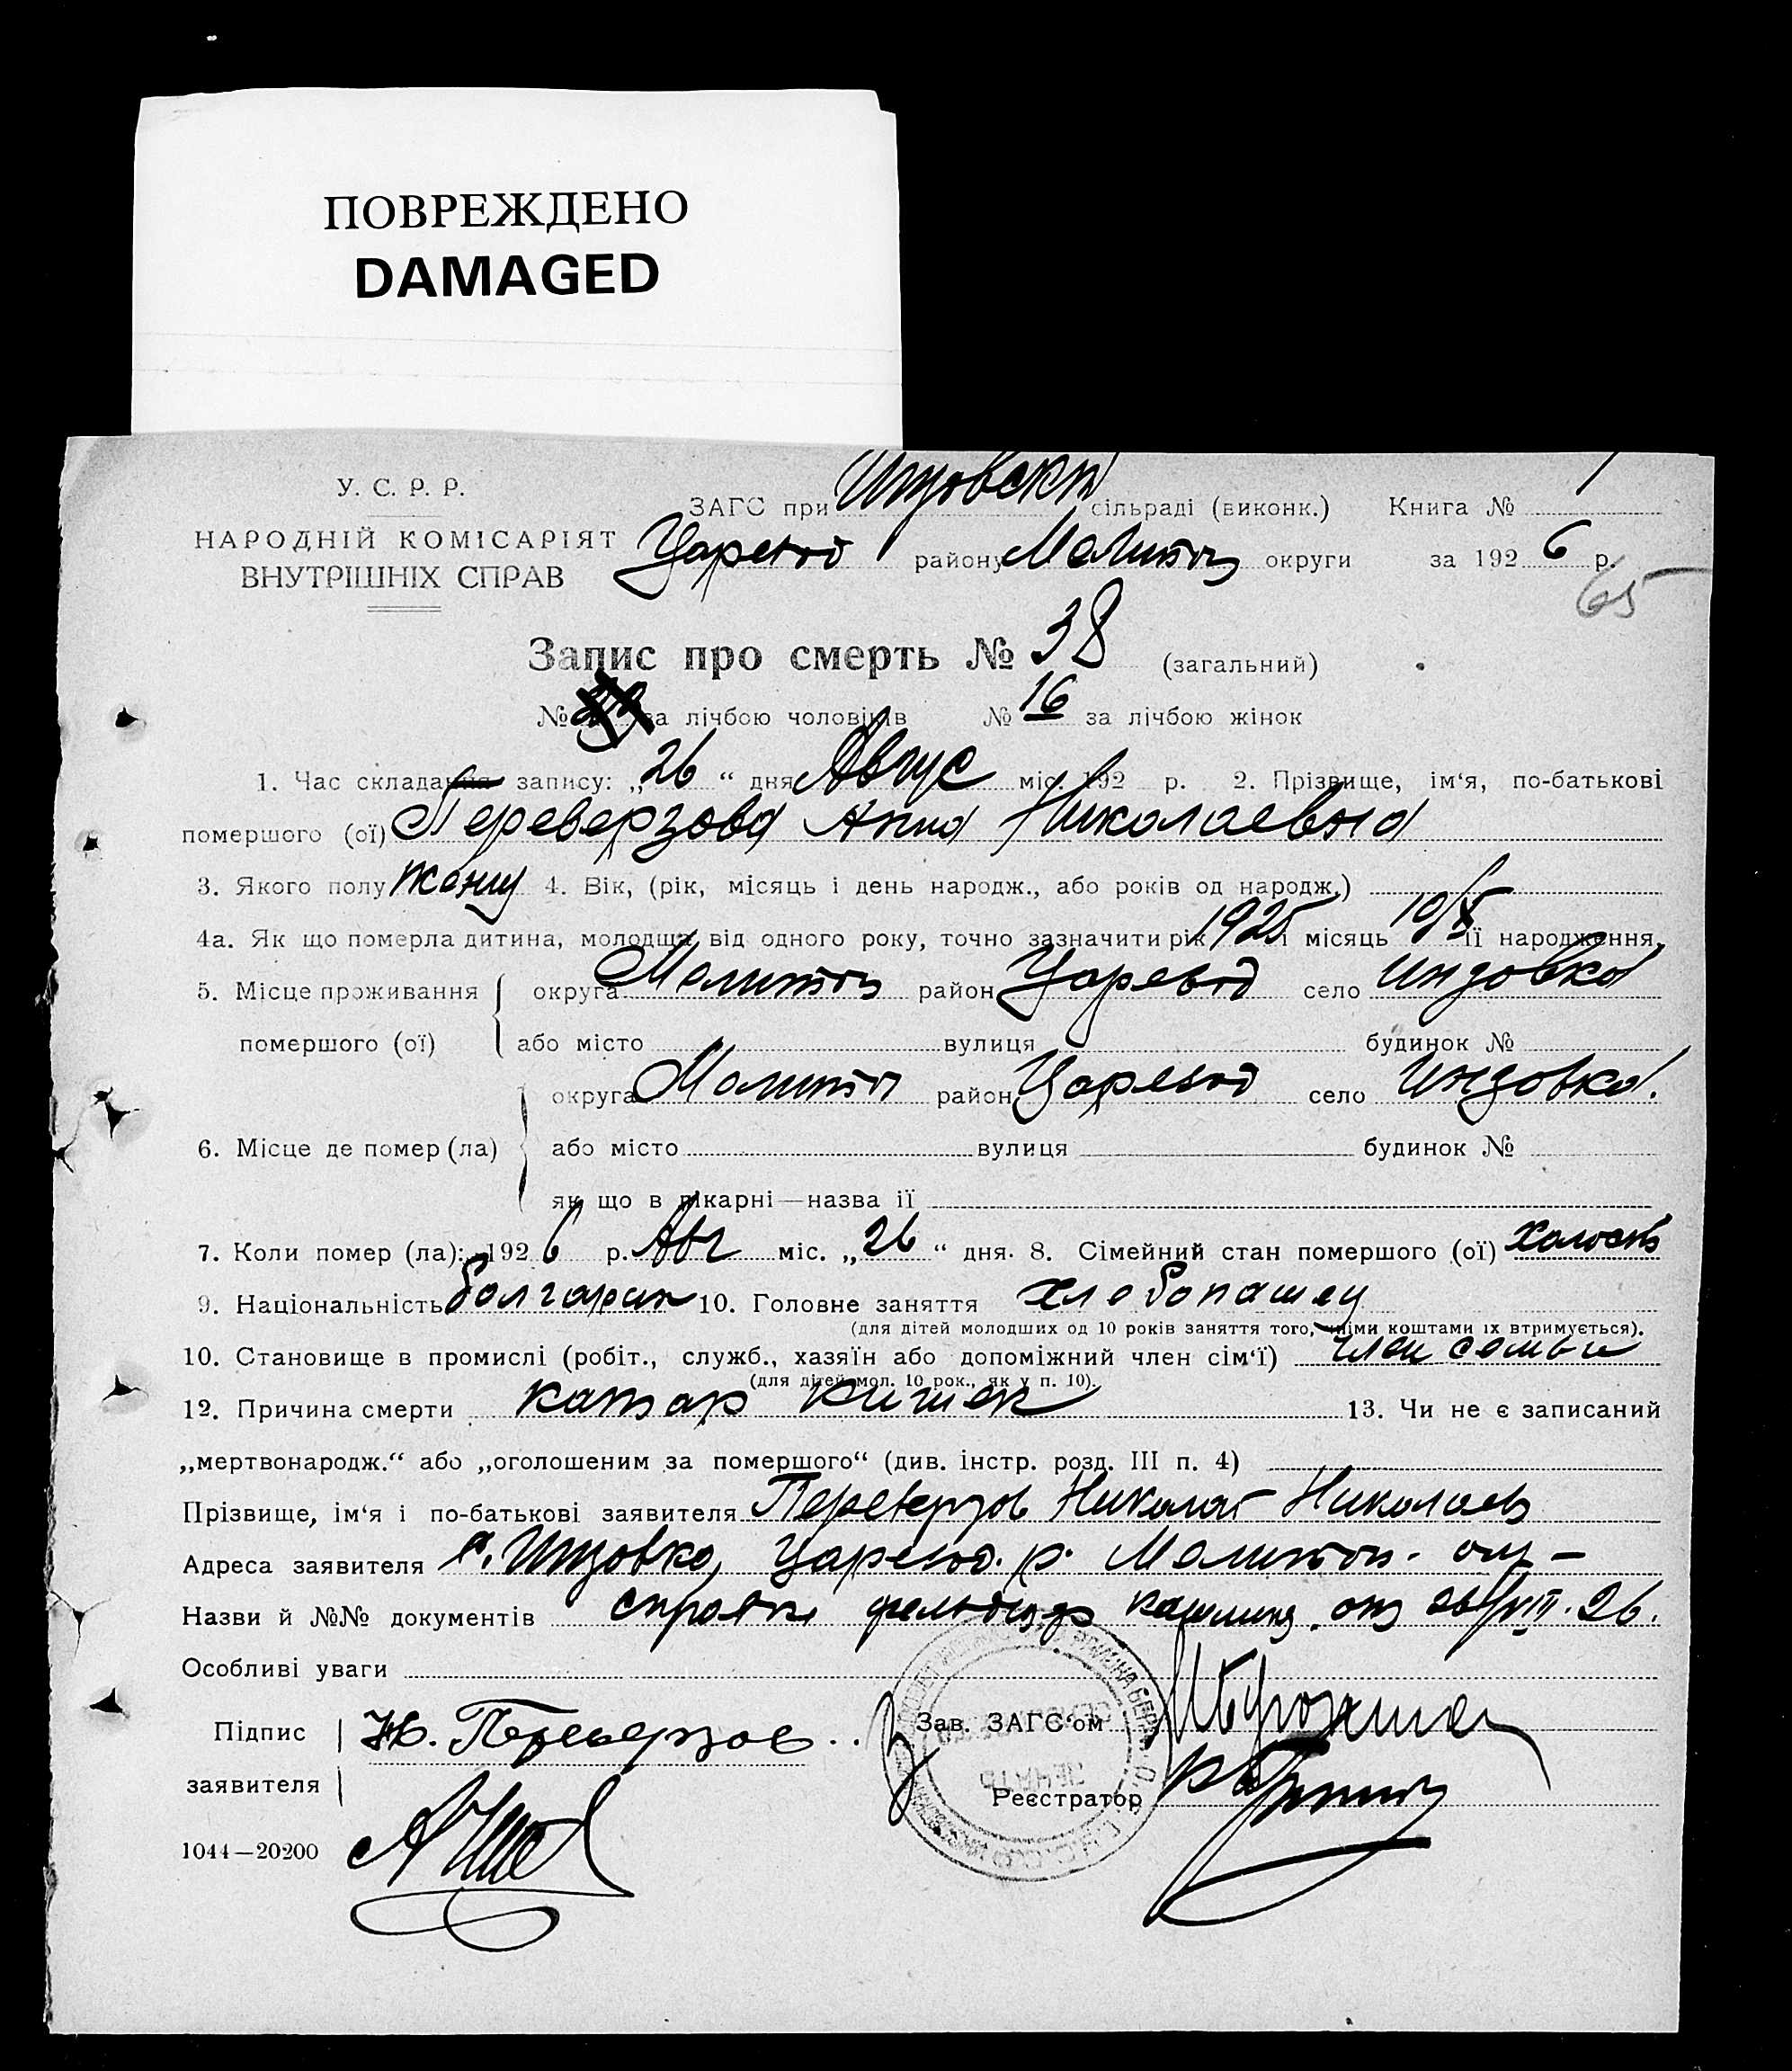 ПОВРЕЖДЕНО
DAMAGED
У. С. Р. Р.
НАРОДНІЙ КОМІСАРІЯТ
ВНУТРІШНІХ СПРАВ
ЗАГС при сільраді (виконк.) Книга № 1
району Мелитоп округи за 1926 р.
65
Запис про смерть № 38 (загальний)
№ за лічбою чоловіків № 16 за лічбою жінок
1. Час складання запису: „26“ дня Авгус міс. 192 р. 2. Прізвище, ім‘я, по-батькові
помершого (ої) Переверзова Анна Николаевна
3. Якого полу 4. Вік, (рік, місяць і день народж., або років од народж.)
4а. Як що померла дитина, молодща від одного року, точно зазначити рік 1925 і місяць 10/X її народження.
5. Місце проживання помершого (ої) округа Мелитоп район Царевод село Инзовка
або місто вулиця будинок №
6. Місце де помер (ла) округа Мелитоп район Царевод село Инзовка.
або місто вулиця будинок №
як що в лікарні—назва її
7. Коли помер (ла): 1926 р. Авг міс. „26“ дня. 8. Сімейний стан помершого (ої)
9. Національність болгарин 10. Головне заняття хлебопашец
(для дітей молодших од 10 років заняття того, чиїми коштами їх втримується).
10. Становище в промислі (робіт., служб., хазяїн або допоміжний член сім‘ї) член семьи
(для дітей мол. 10 рок., як у п. 10).
12. Причина смерти катар кишек 13. Чи не є записаний
„мертвонародж.“ або „оголошеним за помершого“ (див. інстр. розд. III п. 4)
Прізвище, ім‘я і по-батькові заявителя Переверзов Николай Николаев
Адреса заявителя с. Инзовка, Царевод. р. Мелитоп. окр—
Назви й №№ документів справка от 26/VIII. 26.
Особливі уваги
Підпис заявителя Н. Переверзов
Зав. ЗАГС‘ом
Реєстратор
1044—20200